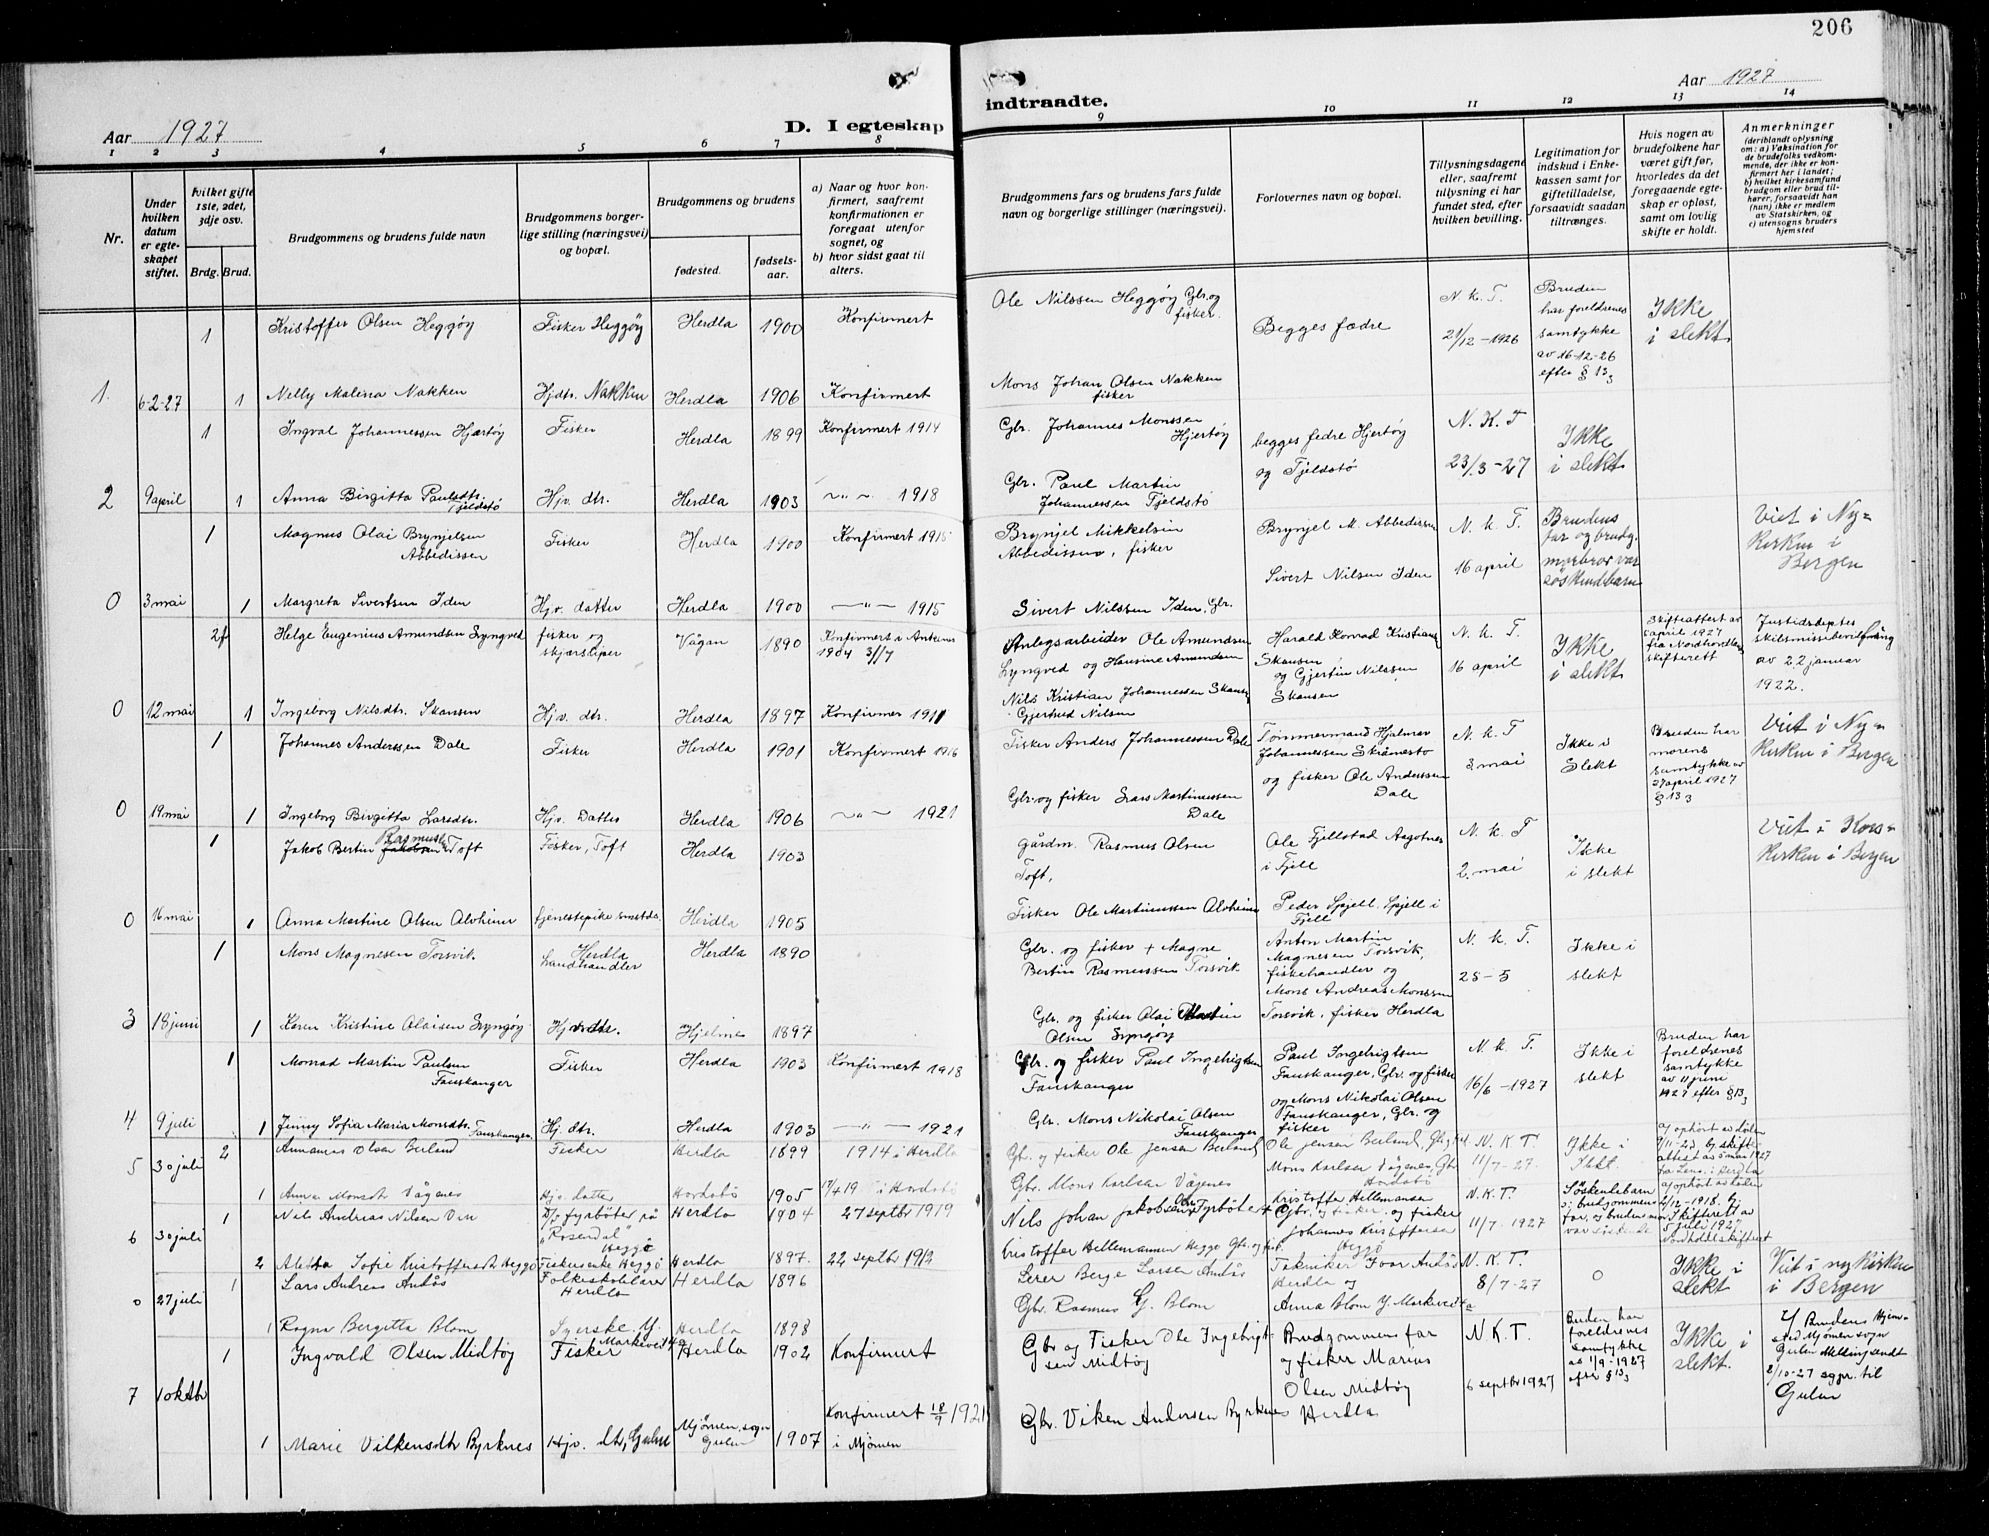 206
Aar 1927
D. I egteskap
indtraadte.
Aar 1927
1 2 3 4 5 6 7 8
9 10 11 12 13 14
Nr.
Under hvilken datum er egteskapet stiftet.
hvilket gifte 1ste, 2det, 3dje osv.
Brdg. Brud.
Brudgommens og brudens fulde navn
Brudgommens borgerlige stilling (næringsvei) og bopæl.
Brudgommens og brudens
fødested.
fødselsaar.
a) Naar og hvor konfirmert, saafremt konfirmationen er foregaat utenfor sognet, og
b) hvor sidst gaat til alters.
Brudgommens fars og brudens fars fulde navn og borgerlige stillinger (næringsvei).
Forlovernes navn og bopæl.
Tillysningsdagene eller, saafremt tillysning ei har fundet sted, efter hvilken bevilling.
Legitimation for indskud i Enkekassen samt for giftetilladelse, forsaavidt saadan tiltrænges.
Hvis nogen av brudefolkene har været gift før, hvorledes da det foregaaende egteskap er opløst, samt om lovlig skifte er holdt.
Anmerkninger
(deriblandt oplysning om: a) Vaksination for de brudefolks vedkommende, der ikke er konfirmert her i landet; b) hvilket kirkesamfund brudgom eller brud tilhører, forsaavidt han (hun) ikke er medlem av Statskirken, og c) utensogns bruders hjemsted
1 Kristoffer Olsen Heggøy Fisker Heggøy Herdla 1900 Konfirmert
Ole Nilssen Heggøy Gbr. og fisker. Begges fædre N. k. T. 21/12-1926 Bruden har foreldrenes samtykke av 16-12-26 efter § 13 3 Ikke i slekt
1. 6-2-27 1 Nelly Malena Nakken Hjdtr. Nakken Herdla 1906 Konfirmert
Mons Johan Olsen Nakken fisker
1 Ingval Johannessen Hjærtøy Fisker Herdla 1899 Konfirmert 1914
Gbr. Johannes Monssen Hjertøy begges fedre Hjertøy og Tjeldstø N. K. T 23/3-27 Ikke i slekt
2 9 april 1 Anna Birgitta Paulsdtr. Tjeldstø Hjv. dtr. Herdla 1903 1918
Gbr. Paul Martin Johannessen Tjeldstø
1 Magnus Olai Brynjelsen Abbedissen Fisker Herdla 1900 Konfirmert 1915
Brynjel Mikkelsen Abbedissen, fisker Brynjel M. Abbedissen N. k. T. 16 april Brudens far og brudg. morbror var søskendbarn Viet i Nykirken i Bergen
0 3 mai 1 Margreta Sivertsen Iden Hjv. datter Herdla 1900 1915
Sivert Nilsen Iden, Gbr. Sivert Nilsen Iden
2f Helge Eugenius Amundsen Lyngved fisker og Vågan 1890 Konfirmert i 1904
Anlegsarbeider Ole Amundsen Lyngved og Hansine Amundsen Harald Konrad Kristians Skansen og Gjertin Nilssen Skansen N. k. T. 16 april Ikke i slekt Skifteattest av april 1927 fra Nordhordlen skifterett Justisdeptes skilsmissebevilling av 22 januar 1922.
0 12 mai 1 Ingeborg Nilsdtr. Skansen Hjv. dtr. Herdla 1897 Konfirmer 1911
Nils Kristian Johannessen Skansen Gjertrud Nilsen
1 Johannes Anderssen Dale Fisker Herdla 1901 Konfirmert 1916
Fisker Anders Johannessen Dale Tømmermand Hjalmar Johannessen Skrämestø og fisker Ole Anderssen Dale N. k. T 3 mai Ikke i Slekt Bruden har morens samtykke av 27 april 1927 § 13 3 Viet i Nykirken i Bergen
0 19 mai 1 Ingeborg Birgitta Larsdtr. Hjv. Datter Herdla 1906 1921
Gbr. og fisker Lars Martinussen Dale
1 Jakob Bertin Rasmussen Toft Fisker, Toft Herdla 1903
gårdm. Rasmus Olsen Toft, Ole Fjellstad Aagotnes i Fjell N. k. T 2. mai Ikke i slekt Viet i Korskirken i Bergen
0 16 mai 1 Anna Martine Olsen Alvheim tjenestepike Herdla 1905
Fisker Ole Martinussen Alvheim Peder Spjell, Spjell i Fjell
1 Mons Magnesen Torsvik. Herdla Landhandler Herdla 1890
Gbr. og fisker + Magne Bertin Rasmussen Torsvik Anton Martin Magnesen Torsvik, fiskehandler og Mons Andreas Monssen Torsvik, fisker Herdla N. k. T. 25-5 Ikke i slekt
3 18 juni 1 Karen Kristine Olaisen Lyngøy Hjvdtr. Hjelme 1897
Gbr. og fisker Olai Martin Olsen Lyngøy
1 Monrad Martin Paulsen Fauskanger Fisker Herdla 1903 Konfirmert 1918
Gbr. og fisker Paul Ingebrigtsen Fauskanger Paul Ingebrigtsen Fauskanger, Gbr. og fisker og Mons Nikolai Olsen Fauskanger, Gbr. og fisker N. k. T. 16/6-1927 Ikke i slekt Bruden har foreldrenes samtykke av 11 juni 1927 efter § 13 3
4 9 juli 1 Jenny Sofia Maria Monsdtr. Fauskanger Hj. dtr. Herdla 1903 1921
Gbr. Mons Nikolai Olsen Fauskanger
5 30 juli 2 Ananias Olsen Berland Fisker Herdla 1899 1914 i Herdla
Gbr. og fisker Ole Jensen Berland Ole Jensen Berland, Gbr. Mons Karlsen Vågenes, Gbr. Hordabø N. K. T. 11/7-27. Ikke i slekt
1 Anna Monsdtr Vågenes Hjv. datter Hordabø 1905 i Hordabø
Gbr. Mons Karlsen Vågenes
6 30 juli 1 Nils Andreas Nilsen Ven fyrbøter på "Rosendal" Herdla 1904 27 septbr 1919
Nils Johan Jakobsen fyrbøter Kristoffer Hellemansen Gbr. og fisker og fisker Johannes Kristoffersen Heggø N. K. T. 11/7 1927
2 Sofie Kristoffersdtr Heggø Fiskerenke Heggø Herdla 1897. 22 septbr 1912
Kristoffer Hellemansen Heggø Gbr. og fisk.
0 27 juli 1 Lars Andreas Andås Folkeskolelærer Herdla Herdla 1896
Lærer Berge Larsen Andås Tekniker Ivar Andås Herdla og Anna Blom Y. Markevei N. K. T. 8/7-27 0 Ikke i slekt Viet i nykirken i Bergen
1 Ragna Bergitta Blom Syerske Y. Markevei Herdla 1898
Gbr. Rasmus G. Blom
7 1 oktbr 1 Ingvald Olsen Midtøy Fisker Herdla 1902 Konfirmert
Gbr og Fisker Ole Ingebrigtsen Midtøy Brudgommens far og fisker Marius Olsen Midtøy Herdla N. K. T. 6 septbr 1927 Bruden har foreldrenes samtykke av 1/9-1927 efter § 13 3 Ikke i slekt. Brudens Hjemsted Mjømen sogn Gulen Melding sendt 2/10-27 sgpr. til Gulen
1 Marie Vilkensdtr Byrknes Hjv. dtr, Gulen Mjømen, sogn Gulen 1907 Konfirmert 18/9 1921 i Mjømen
Gbr. Viken Andersen Byrknes